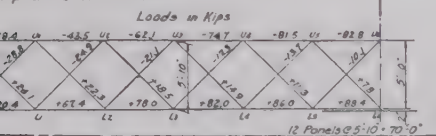 Loads in Kips
8.4 U1 -43.5 U2 -62.1 U3 -74.7 U4 -81.5 U5 -82.8 U6
-28.8 -24.9 -21.1 -12.3 -13.7 -10.1
5'-10" 5'-10"
+26.1 +22.3 +18.5 +14.9 +11.3 +7.8
20.4 L1 +67.4 L2 +78.0 L3 +82.0 L4 +86.0 L5 +88.4
12 Panels @ 5'-10 = 70'-0"